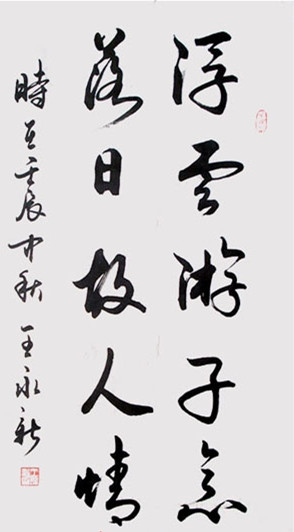 浮雲游子意
落日故人情
時在壬辰中秋 王永新